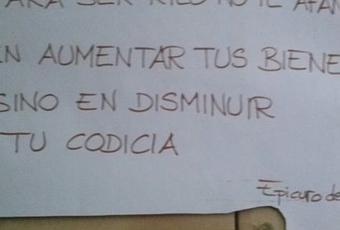 PARA SER RICO NO TE AFAN
EN AUMENTAR TUS BIENE
SINO EN DISMINUIR
TU CODICIA
Epicuro de